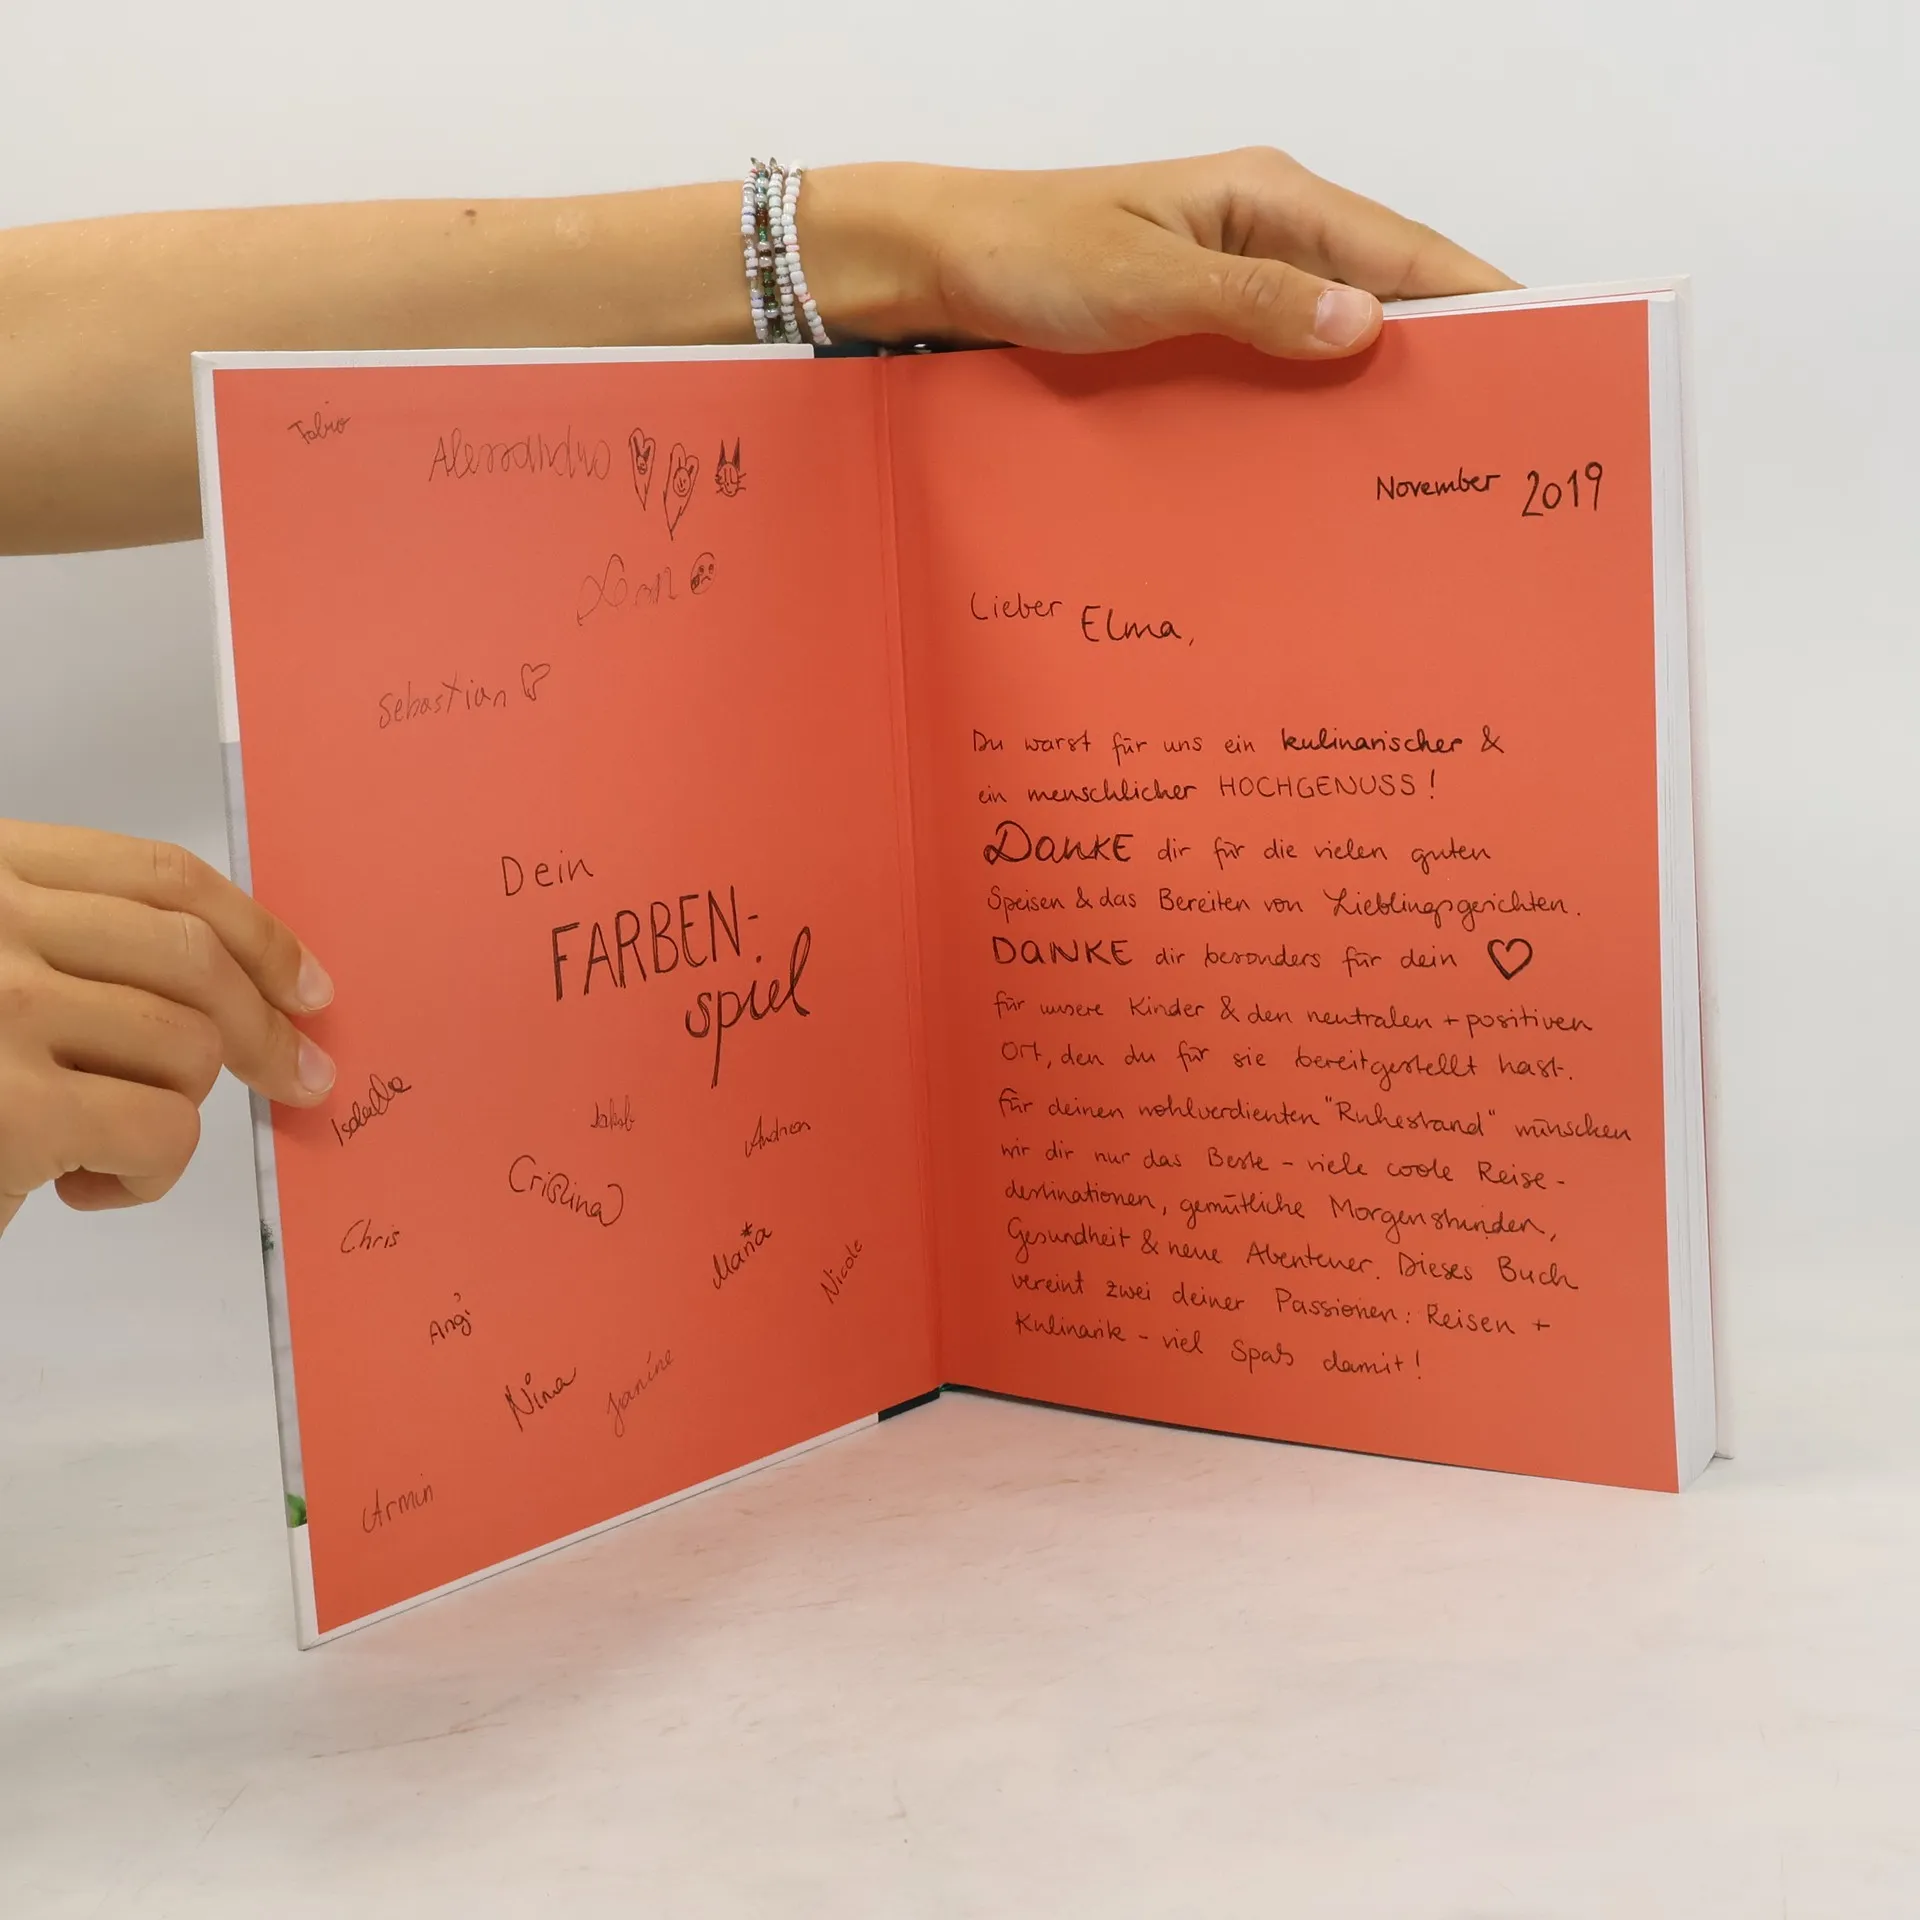 Fabio
Alessandro
Leon
Sebastian
Dein
FARBEN-
spiel
Isabella
Jakob
Andrea
Cristina
Chris
Maria
Nicole
Angi
Nina
Janine
Armin
November 2019
Lieber Elma,
Du warst für uns ein kulinarischer &
ein menschlicher HOCHGENUSS!
DANKE dir für die vielen guten
Speisen & das Bereiten von Lieblingsgerichten.
DANKE dir besonders für dein ♡
für unsere Kinder & den neutralen + positiven
Ort, den du für sie bereitgestellt hast.
Für deinen wohlverdienten "Ruhestand" wünschen
wir dir nur das Beste - viele coole Reise-
destinationen, gemütliche Morgenstunden,
Gesundheit & neue Abenteuer. Dieses Buch
vereint zwei deiner Passionen: Reisen +
Kulinarik - viel Spaß damit!